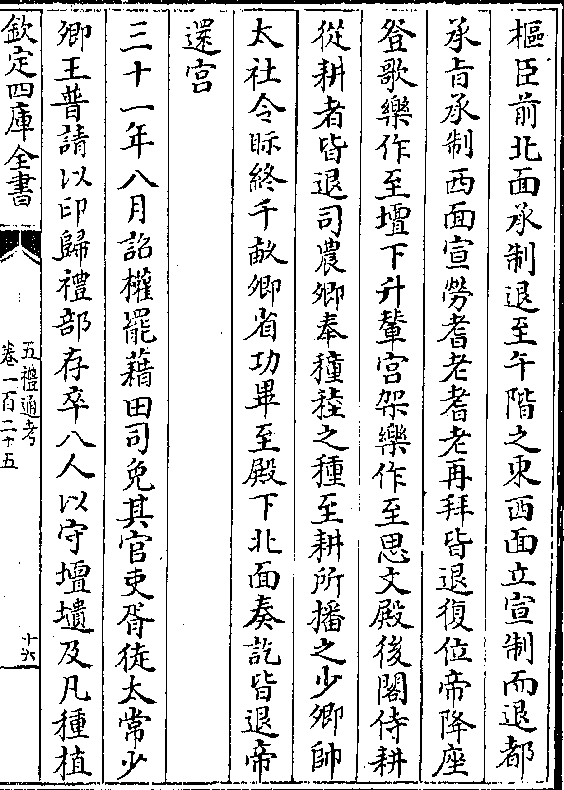 樞臣前北面承制退至午階之東西面立宣制而退都
承旨承制西面宣勞耆老耆老再拜皆退復位帝降座
登歌樂作至壇下升輦宮架樂作至思文殿後閣侍耕
從耕者皆退司農卿奉穜稑之種至耕所播之少卿帥
太社令眎終千畝卿省功畢至殿下北面奏訖皆退帝
還宮
三十一年八月詔權罷藉田司免其官吏胥徒太常少
卿王普請以印歸禮部存卒八人以守壇壝及凡種植
欽定四庫全書
五禮通考
卷一百二十五
十六